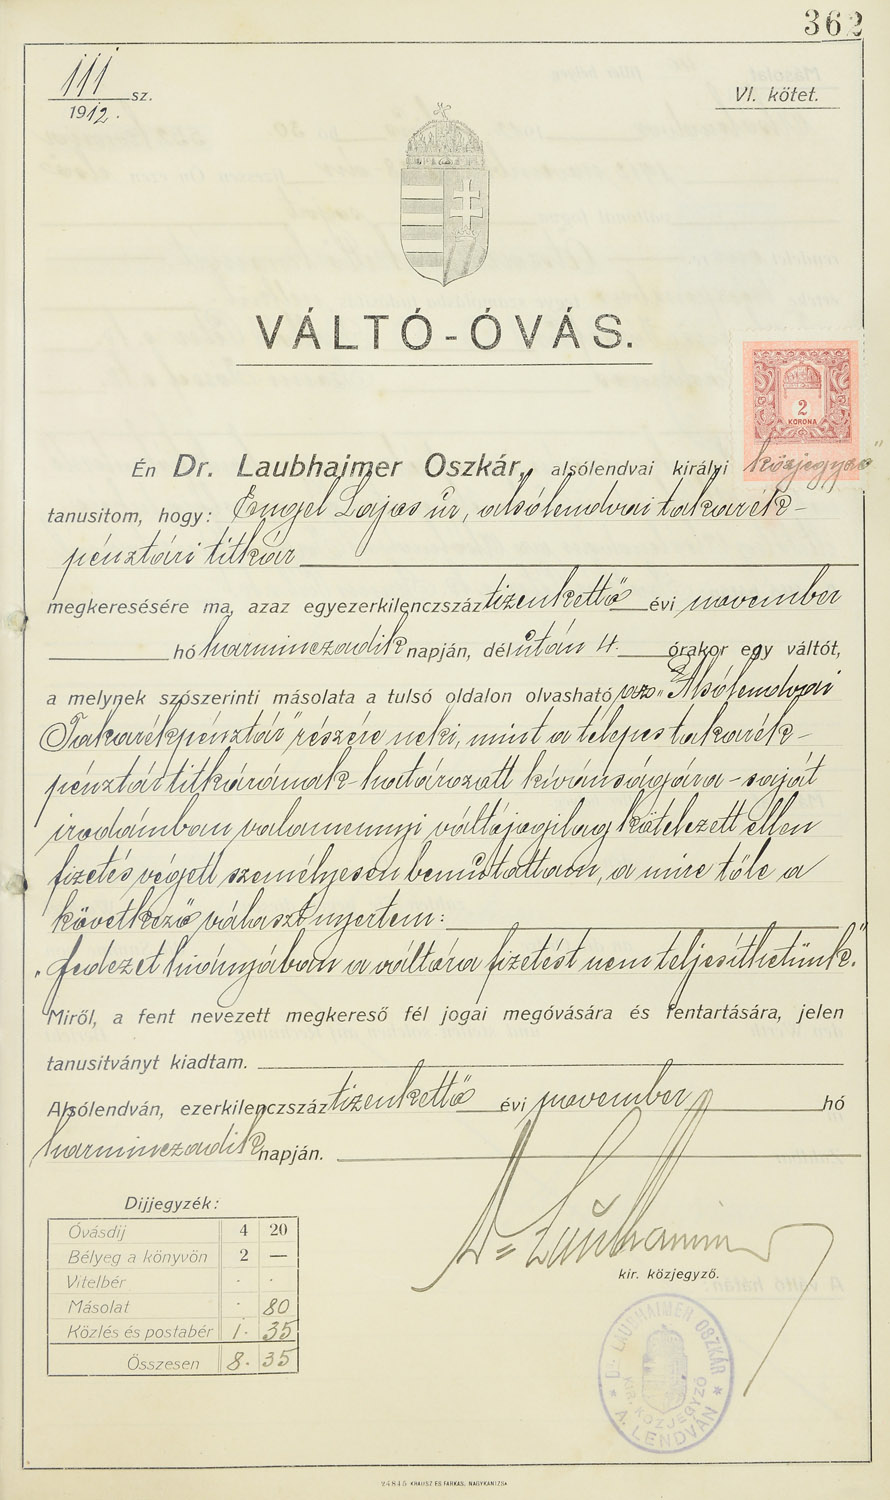 362
111 sz.
1912.
VI. kötet.
VÁLTÓ-ÓVÁS.
2
KORONA
Én Dr. Laubhaimer Oszkár, alsólendvai királyi közjegyző
tanusitom, hogy: Engel Lajos úr, alsólendvai takarék-
pénztári titkár
megkeresésére ma, azaz egyezerkilenczszáz tizenkettő évi november
hó harminczadik napján, délután 4. órakor egy váltót,
a melynek szószerinti másolata a tulsó oldalon olvasható az „Alsólendvai
Takarékpénztár" részére neki, mint a telepes takarék-
pénztár titkárának határozott kívánságára – saját
irodámban valamennyi váltójogilag kötelezett ellen
fizetés végett személyesen bemutattam, a mire tőle a
következő választ nyertem:
„fedezet hiányában a váltóra fizetést nem teljesíthetünk."
Miről, a fent nevezett megkereső fél jogai megóvására és fentartására, jelen
tanusitványt kiadtam.
Alsólendván, ezerkilenczszáz tizenkettő évi november hó
harminczadik napján.
Dr Laubhaimer
kir. közjegyző.
Dijjegyzék:
Óvásdij 4 20
Bélyeg a könyvön 2 —
Vitelbér · ·
Másolat · 80
Közlés és postabér 1. 35
Összesen 8. 35
Dr. LAUBHAIMER OSZKÁR
KIR. KÖZJEGYZŐ
* A. LENDVÁN *
24845 KRAUSZ ÉS FARKAS, NAGYKANIZSA